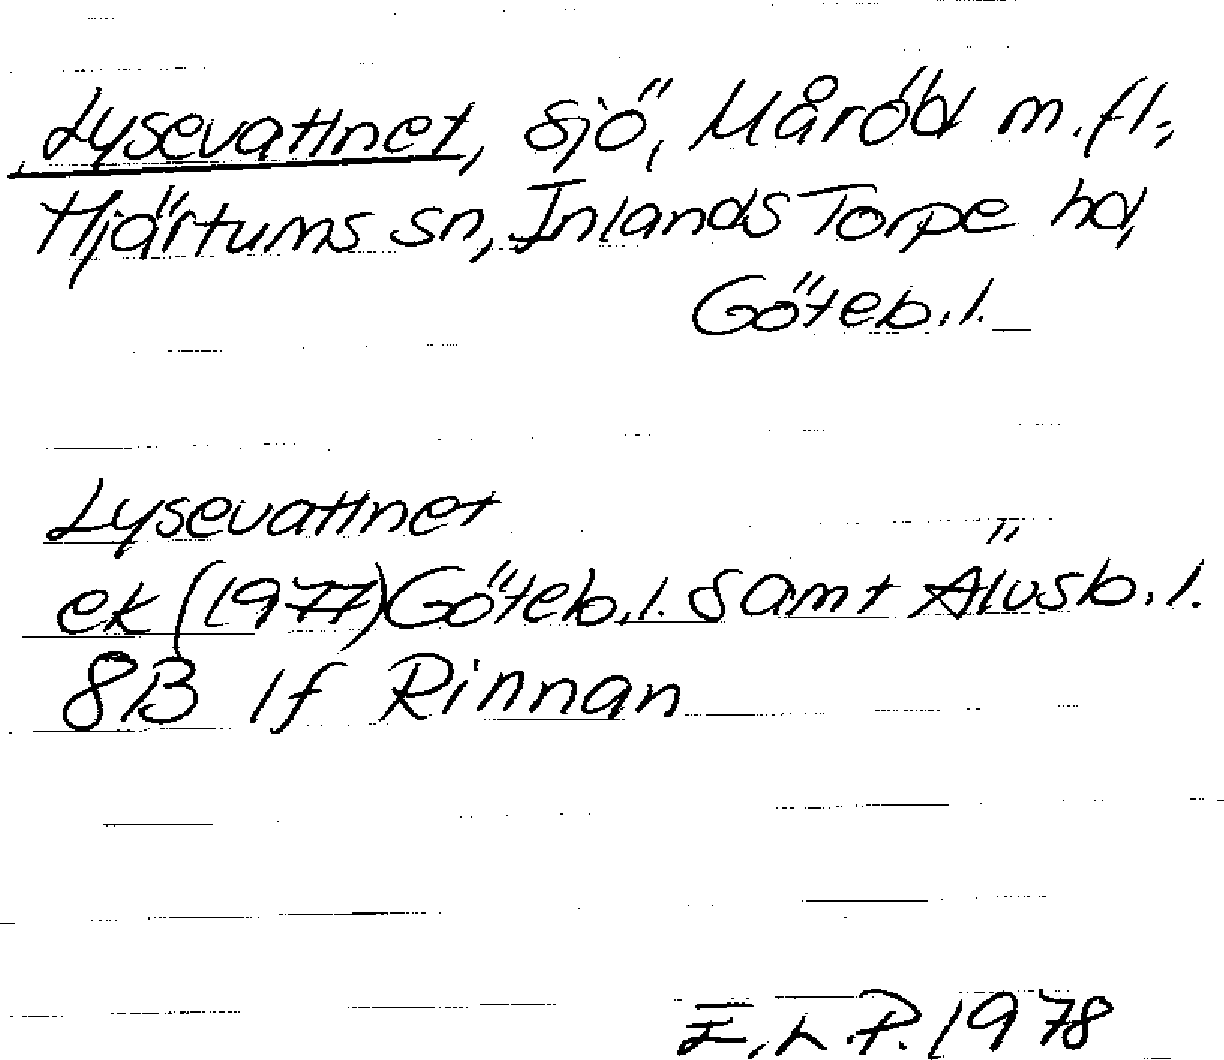 Lysevattnet, sjö, Måröd m.fl.,
Hjärtums sn, Inlands Torpe hd,
Göteb.l.
Lysevattnet
ek (1977) Göteb.l. samt Älvsb.l.
8B 1f Rinnan
E.L.P. 1978